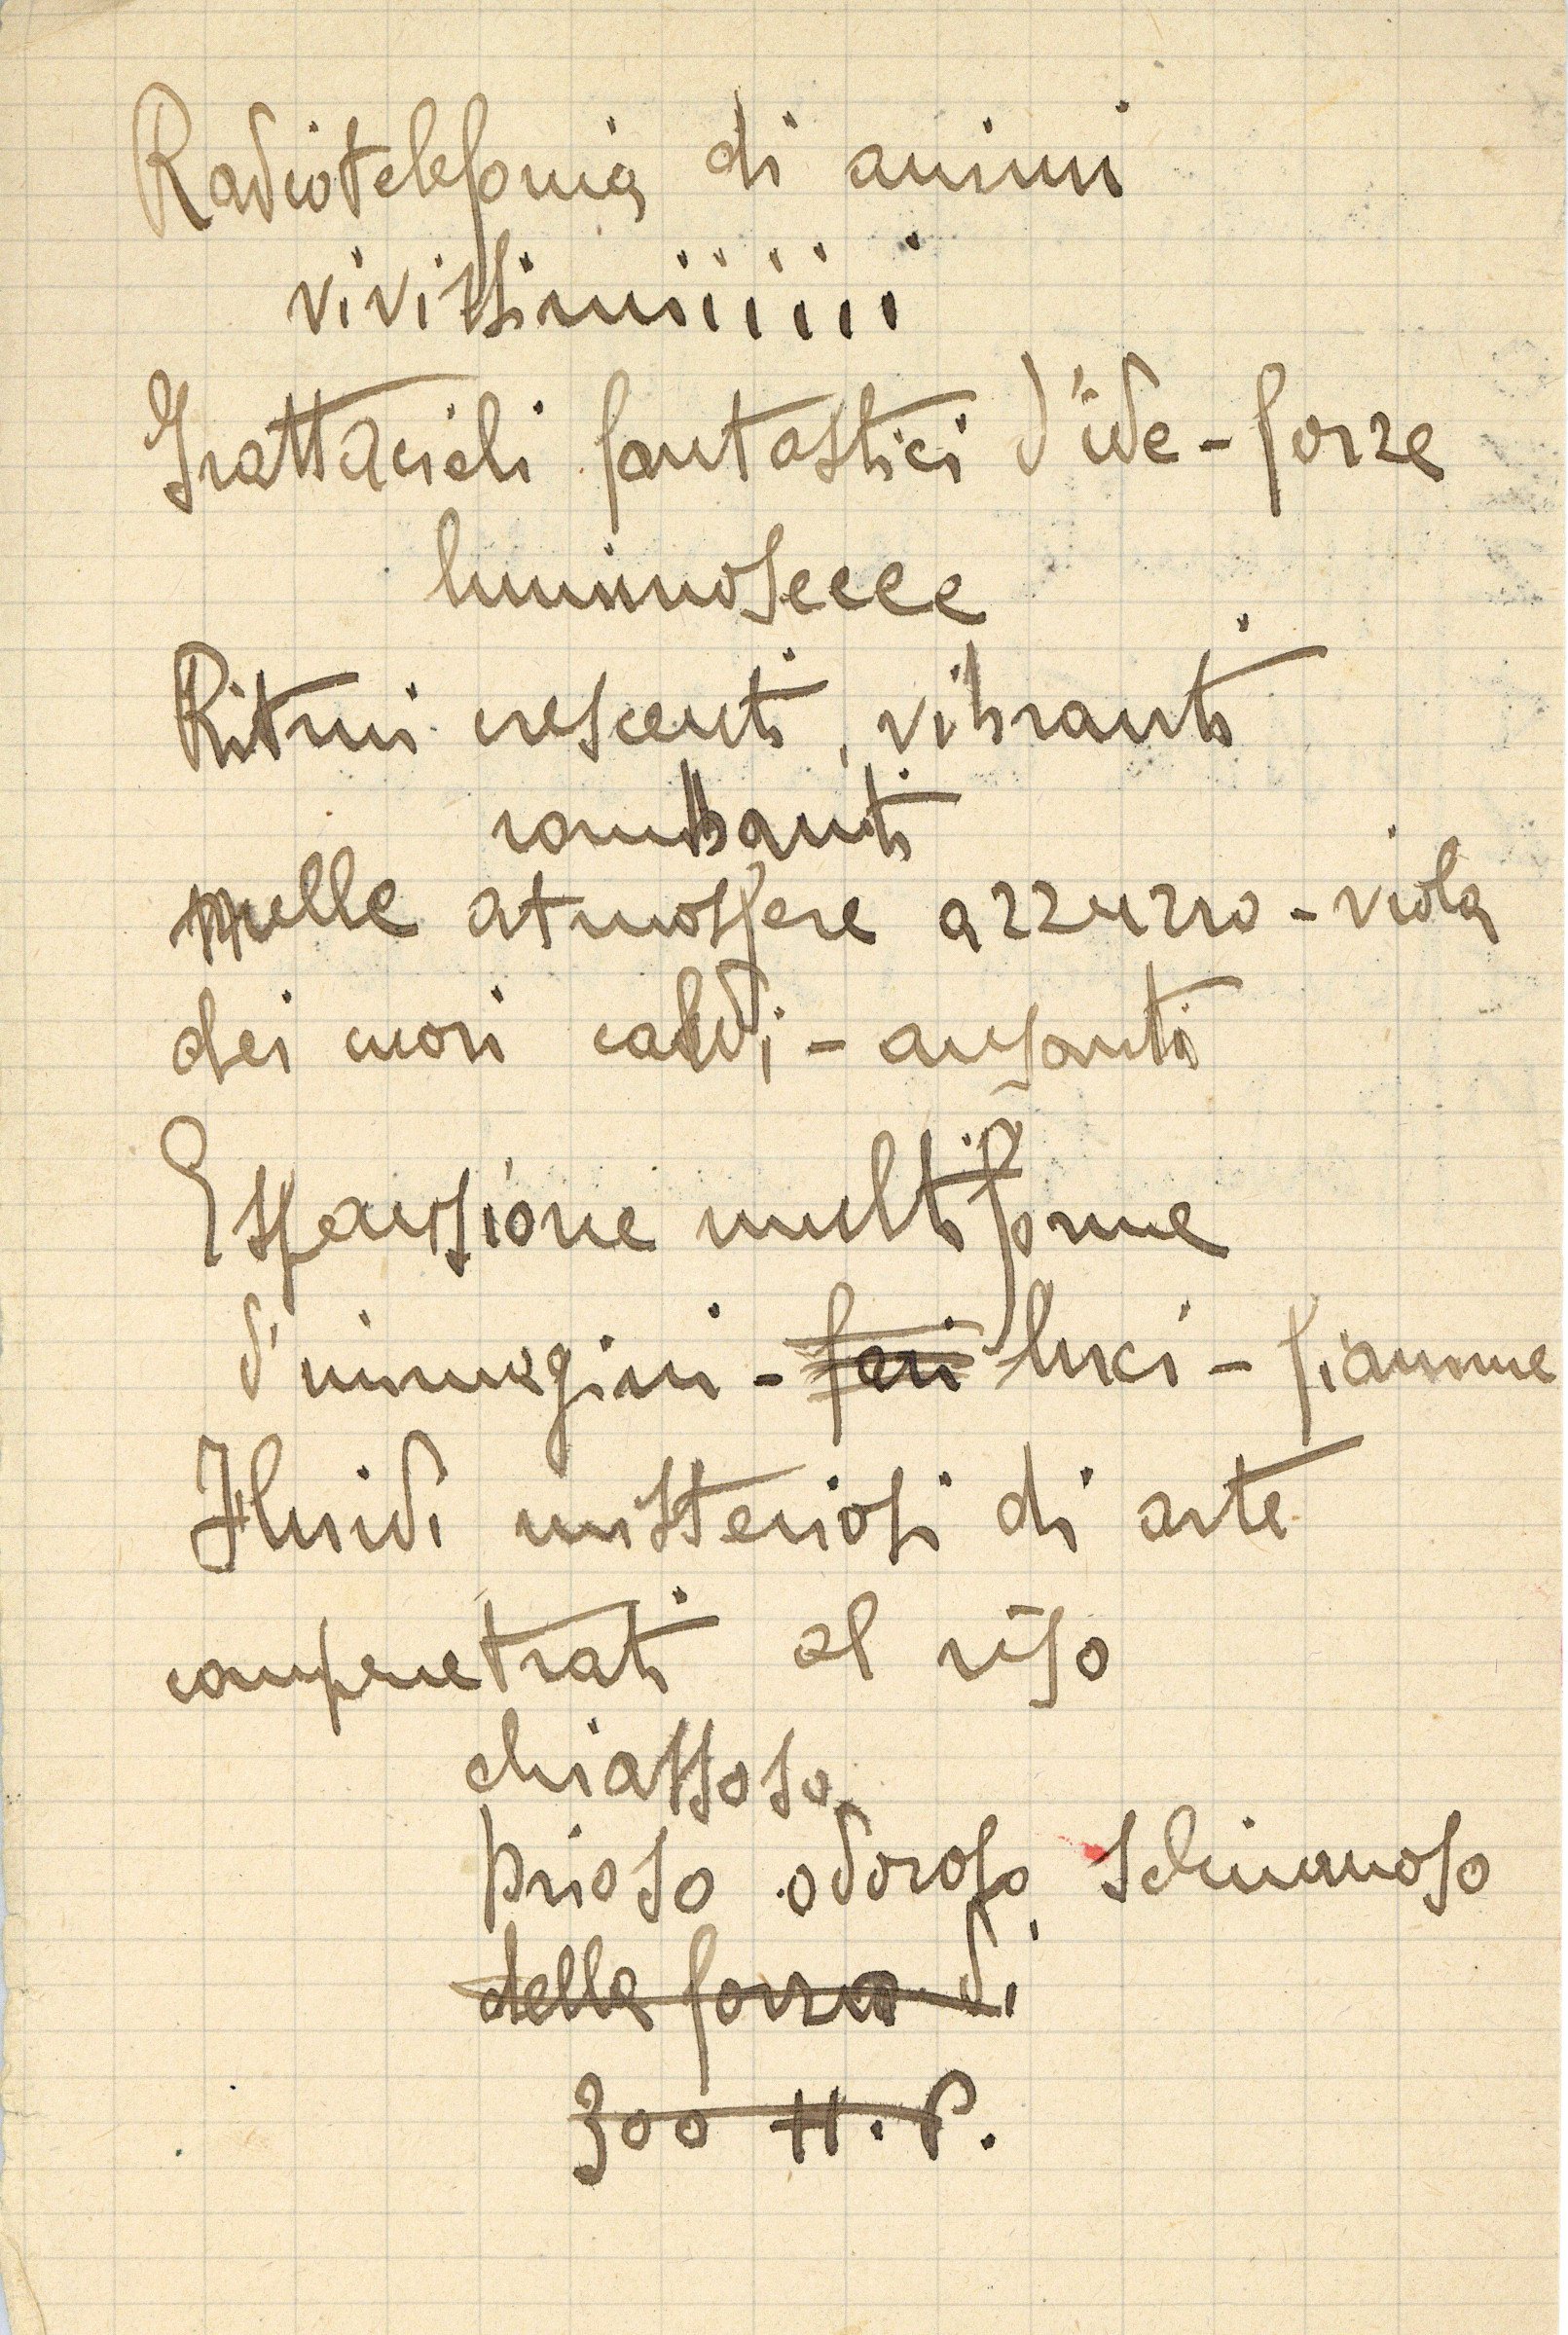 Radiotelefonia di animi
vivissimiiiiii
Grattacieli fantastici d'ide-forze
luminoseeee
Ritmi crescenti, vibranti
rombanti
nelle atmosfere azzurro-viola
dei cuori caldi-ansanti
Espansione multiforme
d'immagini - fari luci - fiamme
Fluidi misteriosi di arte
compenetrati al riso
chiassoso
brioso odoroso schiumoso
della forza di
300 H.P.